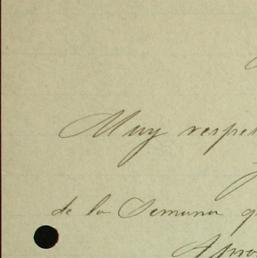 Muy respe
de la Semana q
Apro